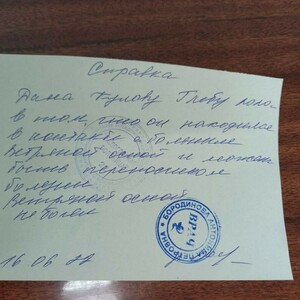 Справка
Дана Кулову Глебу
в том, что он находился
в контакте с больным
ветряной оспой и может
быть переносчиком
болезни
Ветряной оспой
не болел
16 06 22
БОРОДИНОВА АНТОНИНА ПЕТРОВНА
ВРАЧ